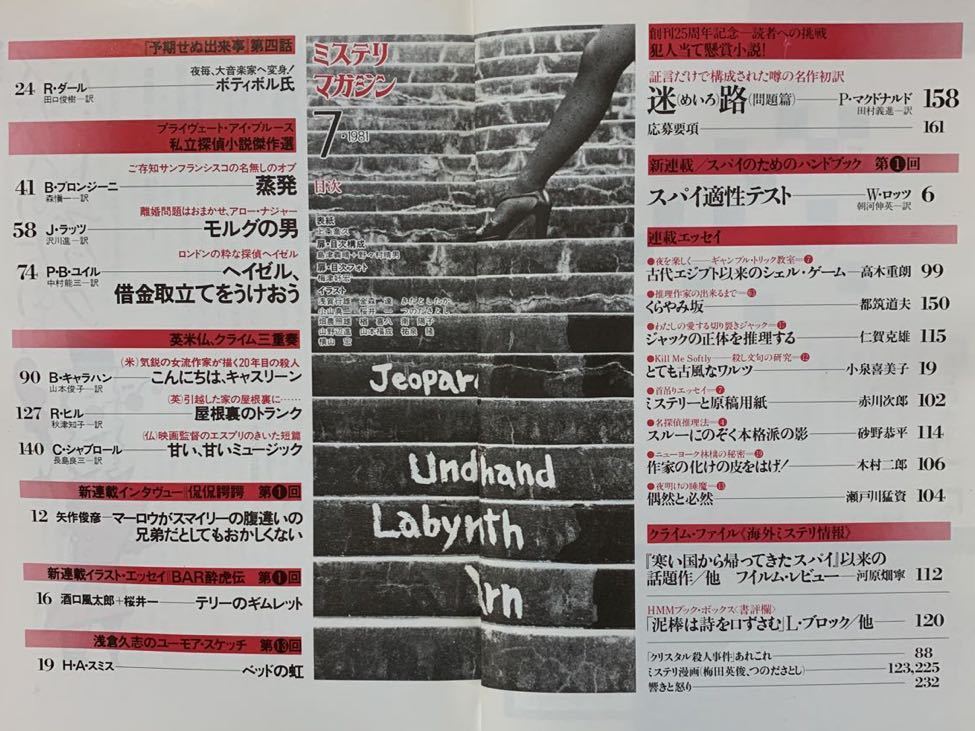 『予期せぬ出来事』第四話
夜毎、大音楽家へ変身!
24 R・ダール ボティボル氏
田口俊樹―訳
プライヴェート・アイ・ブルース
私立探偵小説傑作選
ご存知サンフランシスコの名無しのオプ
41 B・プロンジーニ 蒸発
森愼一―訳
離婚問題はおまかせ、アロー・ナジャー
58 J・ラッツ モルグの男
沢川進―訳
ロンドンの粋な探偵ヘイゼル
74 P・B・ユイル ヘイゼル、
中村能三―訳
借金取立てをうけおう
英米仏、クライム三重奏
(米)気鋭の女流作家が描く20年目の殺人
90 B・キャラハン こんにちは、キャスリーン
山本俊子―訳
(英)引越した家の屋根裏に……
127 R・ヒル 屋根裏のトランク
秋津知子―訳
(仏)映画監督のエスプリのきいた短篇
140 C・シャブロール 甘い、甘いミュージック
長島良三―訳
新連載インタヴュー‖侃侃諤諤 第❶回
12 矢作俊彦―マーロウがスマイリーの腹違いの
兄弟だとしてもおかしくない
新連載イラスト・エッセイ‖BAR酔虎伝 第❶回
16 酒口風太郎+桜井一 テリーのギムレット
浅倉久志のユーモア・スケッチ 第⓭回
19 H・A・スミス ベッドの虹
ミステリ
マガジン
7・1981
目次
表紙
扉・目次構成
扉・目次フォト
イラスト
Jeopar
Undhand
Labynth
Arn
創刊25周年記念―読者への挑戦
犯人当て懸賞小説!
証言だけで構成された噂の名作初訳
迷(めいろ)路(問題篇) P・マクドナルド 158
田村義進―訳
応募要項 161
新連載/スパイのためのハンドブック 第❶回
スパイ適性テスト W・ロッツ 6
朝河伸英―訳
連載エッセイ
●夜を楽しく――ギャンブル・トリック教室―❼
古代エジプト以来のシェル・ゲーム―高木重朗 99
●推理作家の出来るまで
くらやみ坂 都筑道夫 150
●わたしの愛する切り裂きジャック―⓱
ジャックの正体を推理する 仁賀克雄 115
●Kill Me Softly――殺し文句の研究―⓬
とても古風なワルツ 小泉喜美子 19
●首吊りエッセイ―❼
ミステリーと原稿用紙 赤川次郎 102
●名探偵推理法―❹
スルーにのぞく本格派の影 砂野恭平 114
●ニューヨーク林檎の秘密―⓳
作家の化けの皮をはげ! 木村二郎 106
●夜明けの睡魔―⓭
偶然と必然 瀬戸川猛資 104
クライム・ファイル《海外ミステリ情報》
『寒い国から帰ってきたスパイ』以来の
話題作/他 フイルム・レビュー―河原畑寧 112
HMMブック・ボックス〈書評欄〉
「泥棒は詩を口ずさむ」L・ブロック/他 120
「クリスタル殺人事件」あれこれ 88
ミステリ漫画(梅田英俊、つのださとし) 123,225
響きと怒り 232